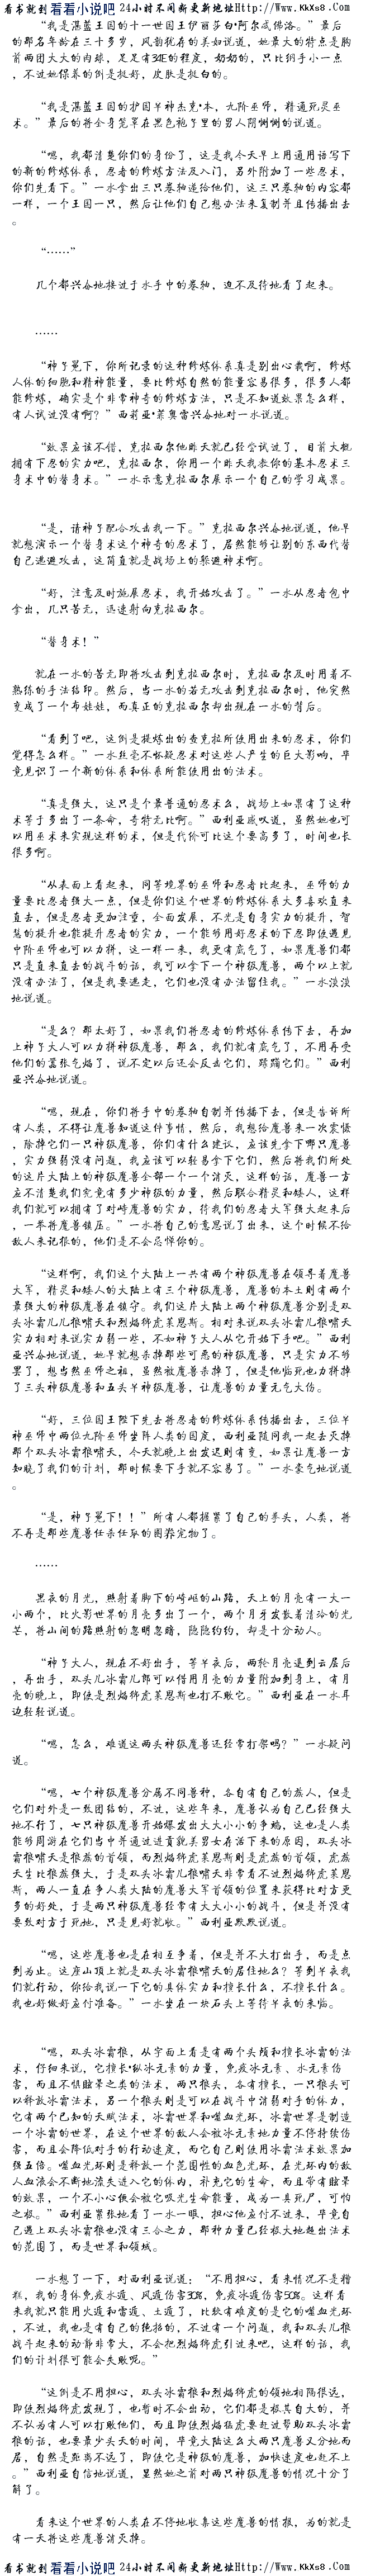 看书就到看看小说吧 24小时不间断更新地址Http://Www.KkXs8.Com
“我是湛蓝王国的十一世国王伊丽莎白•阿尔威佛洛。”最后
的那名年龄在三十多岁，风韵犹存的美妇说道，她最大的特点是胸
前两团大大的肉球，足足有34E的程度，奶奶的，只比纲手小一点
，不过她保养的倒是挺好，皮肤是挺白的。
“我是湛蓝王国的护国半神杰克•本，九阶巫师，精通死灵巫
术。”最后的将全身笼罩在黑色袍子里的男人阴恻恻的说道。
“嗯，我都清楚你们的身份了，这是我今天早上用通用语写下
的新的修炼体系，忍者的修炼方法及入门，另外附加了一些忍术，
你们先看下。”一水拿出三只卷轴递给他们，这三只卷轴的内容都
一样，一个王国一只，然后让他们自己想办法来复制并且传播出去
。
“……”
几个都兴奋地接过于水手中的卷轴，迫不及待地看了起来。
……
“神子冕下，你所记录的这种修炼体系真是别出心裁啊，修炼
人体的细胞和精神能量，要比修炼自然的能量容易很多，很多人都
能修炼，确实是个非常神奇的修炼方法，只是不知道效果怎么样，
有人试过没有啊？”西莉亚•菲奥雷兴奋地对一水说道。
“效果应该不错，克拉西尔他昨天就已经尝试过了，目前大概
拥有下忍的实力吧，克拉西尔，你用一个昨天我教你的基本忍术三
身术中的替身术。”一水示意克拉西尔展示一个自己的学习成果。
“是，请神子配合攻击我一下。”克拉西尔兴奋地说道，他早
就想演示一个替身术这个神奇的忍术了，居然能够让别的东西代替
自己逃避攻击，这简直就是战场上的躲避神术啊。
“好，注意及时施展忍术，我开始攻击了。”一水从忍者包中
拿出，几只苦无，迅速射向克拉西尔。
“替身术！”
就在一水的苦无即将攻击到克拉西尔时，克拉西尔及时用着不
熟练的手法结印。然后，当一水的苦无攻击到克拉西尔时，他突然
变成了一个布娃娃，而真正的克拉西尔却出现在一水的背后。
“看到了吧，这倒是提炼出的查克拉所使用出来的忍术，你们
觉得怎么样。”一水丝毫不怀疑忍术对这些人产生的巨大影响，毕
竟见识了一个新的体系和体系所能使用出的法术。
“真是强大，这只是个最普通的忍术么，战场上如果有了这种
术等于多出了一条命，奇特无比啊。”西利亚感叹道，虽然她也可
以用巫术来实现这样的术，但是代价可比这个要高多了，时间也长
很多啊。
“从表面上看起来，同等境界的巫师和忍者比起来，巫师的力
量要比忍者强大一点，但是你们这个世界的修炼体系大多喜欢直来
直去，但是忍者更加注重，全面发展，不光是自身实力的提升，智
慧的提升也能提升忍者的实力，一个能够用好忍术的下忍即使遇见
中阶巫师也可以力拼，这一样一来，我更有底气了，如果魔兽们都
只是直来直去的战斗的话，我可以拿下一个神级魔兽，两个以上就
没有办法了，但是我要逃走，它们也没有办法留住我。”一水淡淡
地说道。
“是么？那太好了，如果我们将忍者的修炼体系传下去，再加
上神子大人可以力拼神级魔兽，那么，我们就有底气了，不用再受
他们的嚣张气焰了，说不定以后还会反击它们，蹂躏它们。”西利
亚兴奋地说道。
“嗯，现在，你们将手中的卷轴自制并传播下去，但是告诉所
有人类，不得让魔兽知道这件事情，然后，我想给魔兽来一次震慑
，除掉它们一只神级魔兽，你们有什么建议，应该先拿下哪只魔兽
，实力强弱没有问题，我应该可以轻易拿下它们，然后将我们所处
的这片大陆上的神级魔兽全部一个一个消灭，这样的话，魔兽一方
应不清楚我们究竟有多少神级的力量，然后联合精灵和矮人，这样
我们就可以拥有了对峙魔兽的实力，待我们的忍者大军强大起来后
，一举将魔兽镇压。”一水将自己的意思说了出来，这个时候不给
敌人来记狠的，他们是不会忌惮你的。
“这样啊，我们这个大陆上一共有两个神级魔兽在领导着魔兽
大军，精灵和矮人的大陆上有三个神级魔兽，魔兽的本土则有两个
最强大的神级魔兽在镇守。我们这片大陆上两个神级魔兽分别是双
头冰霜儿儿狼啸天和烈焰狮虎莱恩斯。相对来说双头冰霜儿狼啸天
实力相对来说实力弱一些，不如神子大人从它开始下手吧。”西利
亚兴奋地说道，她早就想杀掉那些可恶的神级魔兽，只是实力不够
罢了，想当然巫师之祖，虽然被魔兽杀掉了，但是他临死也力拼掉
了三头神级魔兽和五头半神级魔兽，让魔兽的力量元气大伤。
“好，三位国王陛下先去将忍者的修炼体系传播出去，三位半
神巫师中两位九阶巫师坐阵人类的国度，西利亚随同我一起去灭掉
那个双头冰霜狼啸天，今天就晚上出发迟则有变，如果让魔兽一方
知晓了我们的计划，那时候要下手就不容易了。”一水豪气地说道
。
“是，神子冕下！！”所有人都握紧了自己的拳头，人类，将
不再是那些魔兽任杀任取的圈养宠物了。
……
黑夜的月光，照射着脚下的崎岖的山路，天上的月亮有一大一
小两个，比火影世界的月亮多出了一个，两个月牙发散着清冷的光
芒，将山间的路照射的忽明忽暗，隐隐约约，却是十分动人。
“神子大人，现在不好出手，等半夜后，两轮月亮退到云层后
，再出手，双头儿冰霜儿郎可以借用月亮的力量附加到身上，有月
亮的晚上，即使是烈焰狮虎莱恩斯也打不败它。”西利亚在一水耳
边轻轻说道。
“嗯，怎么，难道这两头神级魔兽还经常打架吗？”一水疑问
道。
“嗯，七个神级魔兽分属不同兽种，各自有自己的族人，但是
它们对外是一致团结的，不过，这些年来，魔兽认为自己已经强大
地不行了，七只神级魔兽开始爆发出大大小小的争端，这也是人类
能够周游在它们当中并通过进贡貌美男女存活下来的原因，双头冰
霜狼啸天是狼族的首领，而烈焰狮虎莱恩斯则是虎族的首领，虎族
天生比狼族强大，于是双头冰霜儿狼啸天非常看不过烈焰狮虎莱恩
斯，两人一直在争人类大陆的魔兽大军首领的位置来获得比对方更
多的好处，于是两只神级魔兽经常有大大小小的战斗，但是并没有
要致对方于死地，只是见好就收。”西利亚默默说道。
“嗯，这些魔兽也是在相互争着，但是并不大打出手，而是点
到为止。这座山顶上就是双头冰霜狼啸天的居住地么？等到半夜我
们就行动，你给我说一下它的具体实力和擅长什么，不擅长什么。
我也好做好应付准备。”一水坐在一块石头上等待半夜的来临。
“嗯，双头冰霜狼，从字面上看是有两个头颅和擅长冰霜的法
术，仔细来说，它擅长•纵冰元素的力量，免疫冰元素、水元素伤
害，而且不惧眩晕之类的法术，两只狼头，各有擅长，一只狼头可
以释放冰霜法术，另一个狼头则是可以在战斗中消弱对手的体力，
它有两个已知的天赋法术，冰霜世界和噬血光环，冰霜世界是制造
一个冰霜的世界，在这个世界的敌人会被冰元素地力量不停持续伤
害，而且会降低对手的行动速度，而它自己则使用冰霜法术效果加
强五倍。噬血光环则是释放一个范围性的血色光环，在光环内的敌
人血液会不断地流失进入它的体内，补充它的生命，而且带有眩晕
的效果，一个不小心便会被它吸光生命能量，成为一具死尸，可怕
之极。”西利亚紧张地看了一水一眼，担心他应付不过来，毕竟自
己遇上双头冰霜狼也没有三合之力，那种力量已经极大地超出法术
的范围了，而是世界和领域。
一水想了一下，对西利亚说道：“不用担心，看来情况不是糟
糕，我的身体免疫水遁、风遁伤害30%，免疫冰遁伤害50%。这样看
来我就只能用火遁和雷遁、土遁了，比较有难度的是它的噬血光环
，不过，我也是有自己的绝招的，不过有一个问题，我和双头儿狼
战斗起来的动静非常大，不会把烈焰狮虎引过来吧，这样的话，我
们的计划很可能会失败呢。”
“这倒是不用担心，双头冰霜狼和烈焰狮虎的领地相隔很远，
即使烈焰狮虎发现了，也暂时不会出动，它们都是极其自大的，并
不认为有人可以打败他们，而且即使烈焰猛虎要赶过帮助双头冰霜
狼的话，也要最少头天的时间，毕竟大陆这么大两只魔兽又分地而
居，自然是距离不远了，即使它是神级的魔兽，加快速度也赶不上
。”西利亚自信地说道，显然她之前对两只神级魔兽的情况十分了
解了。
看来这个世界的人类在不停地收集这些魔兽的情报，为的就是
有一天将这些魔兽消灭掉。
看书就到看看小说吧 24小时不间断更新地址Http://Www.KkXs8.Com